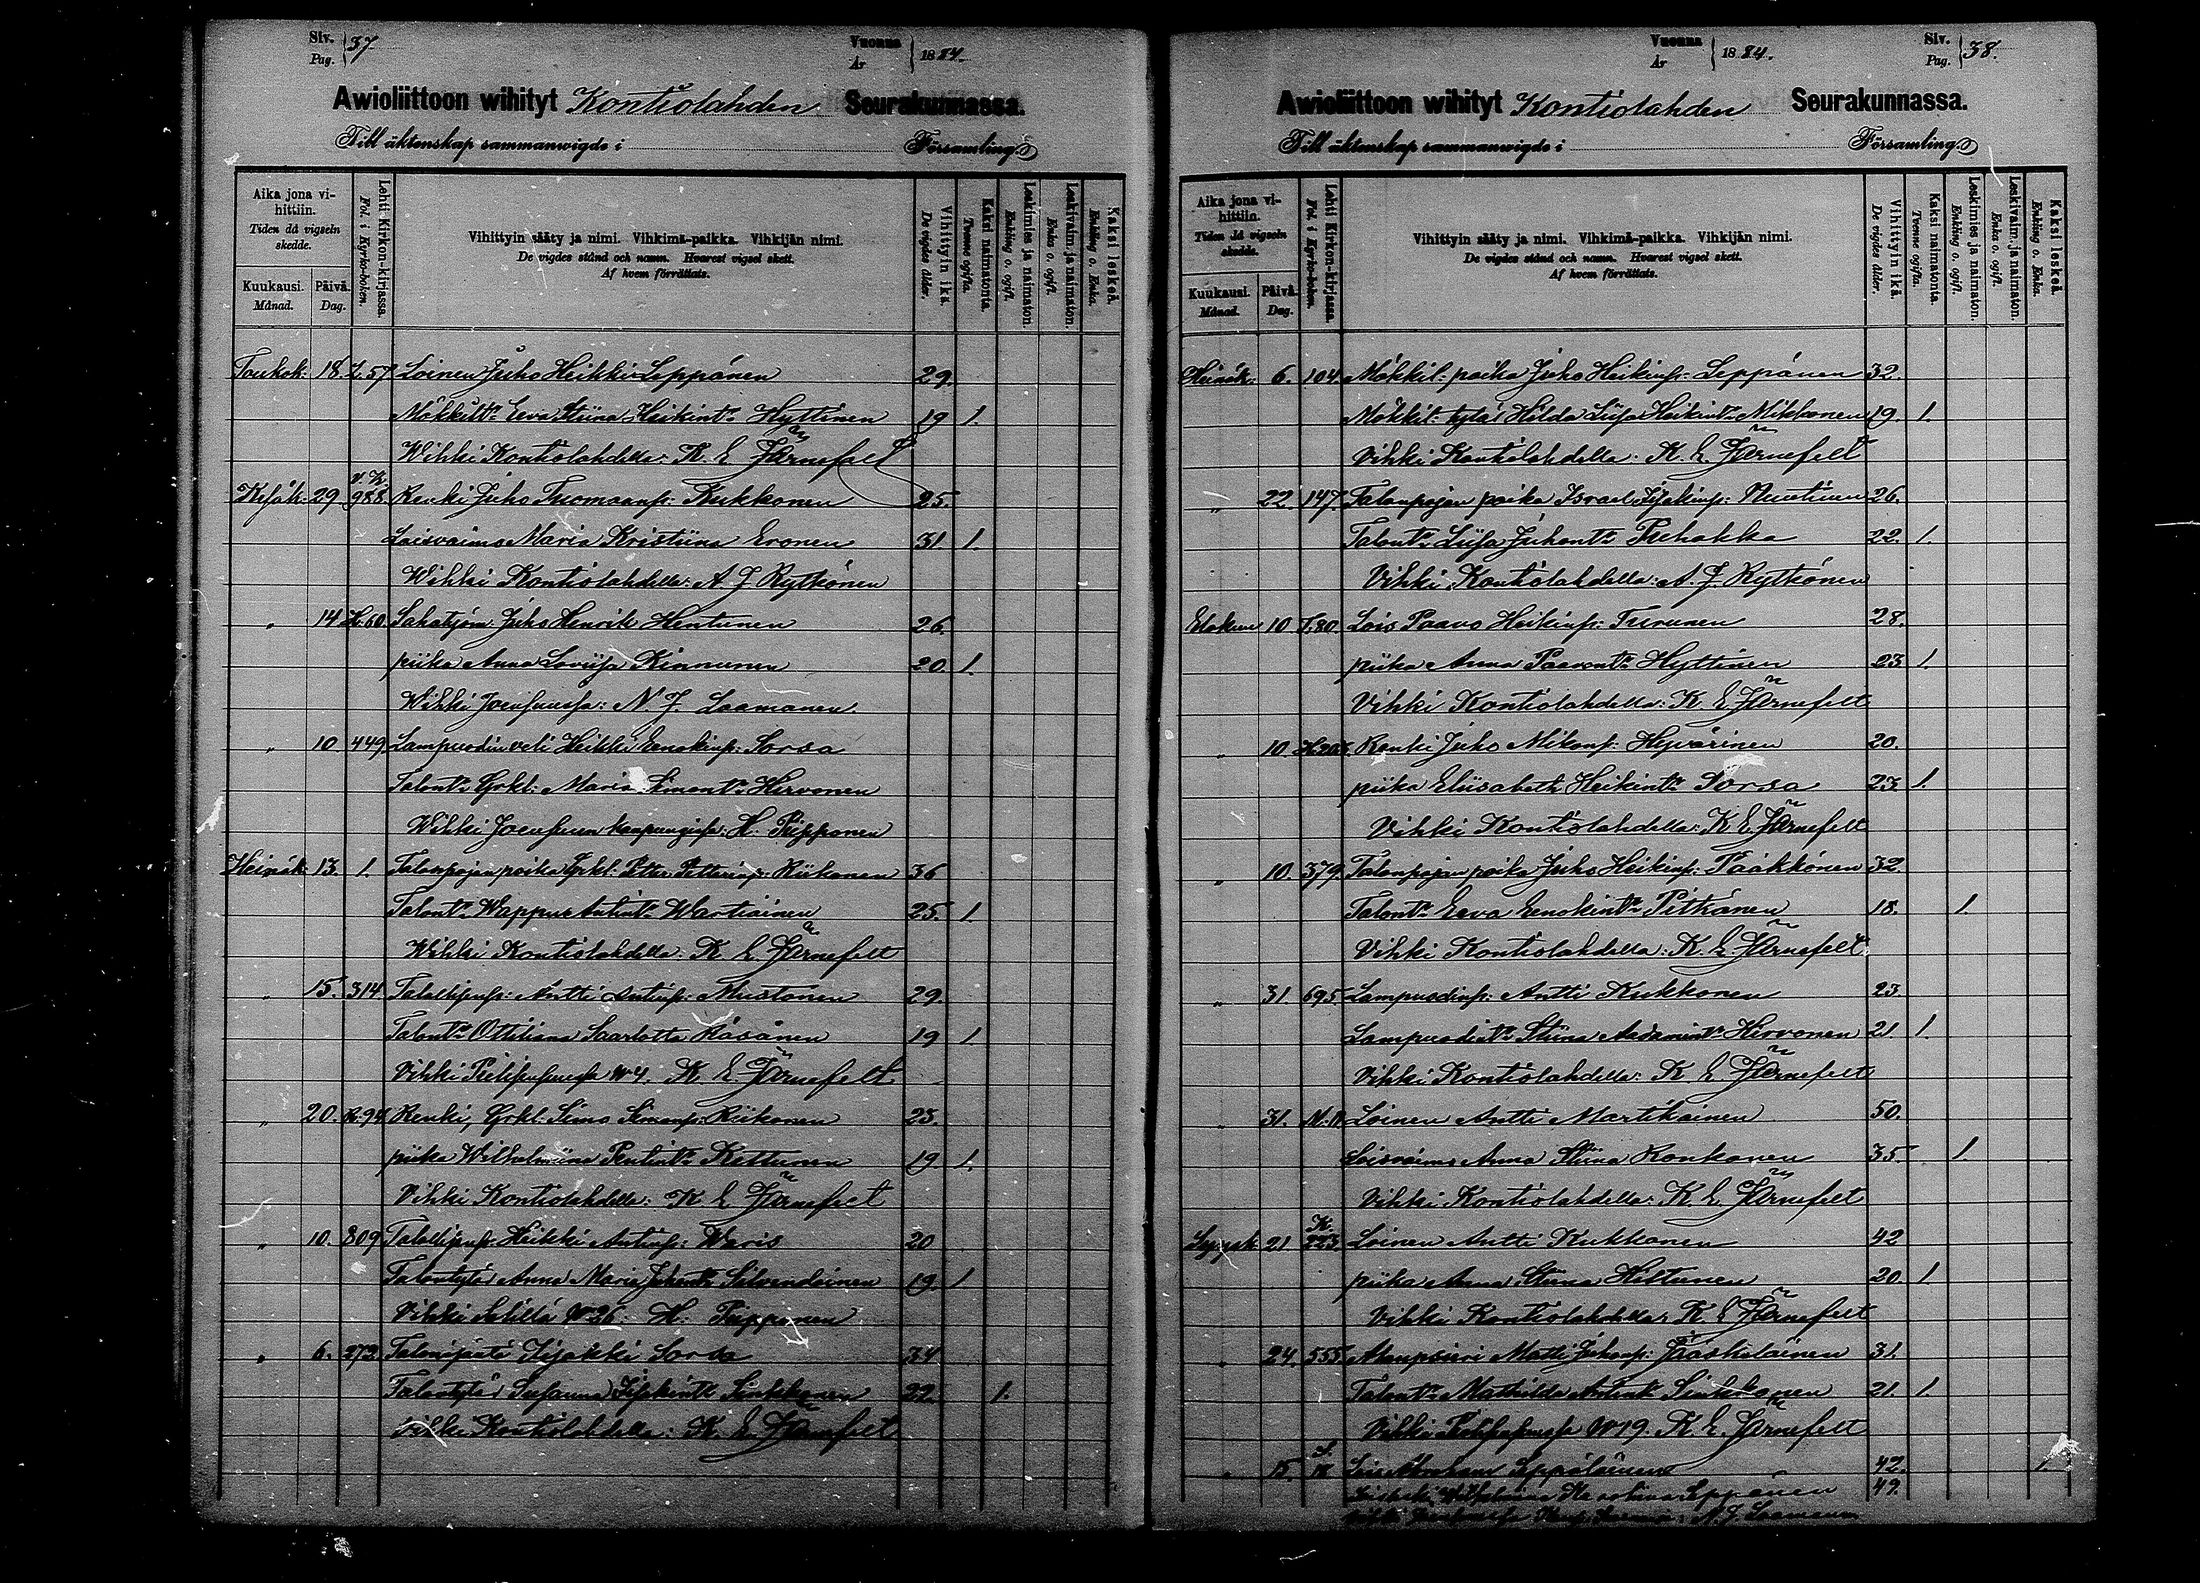 Siv. Pag. 37
Vuonna År 1884.
Awioliittoon wihityt Kontiolahden Seurakunnassa.
Till äktenskap sammanwigde i Församling
Aika jona vihittiin. Tiden då vigseln skedde.
Kuukausi. Månad.
Päivä. Dag.
Lehti Kirkon-kirjassa. Fol. i Kyrko-boken.
Vihittyin sääty ja nimi. Vihkimä-paikka. Vihkijän nimi.
De vigdes stånd och namn. Hvarest vigsel skett.
Af hvem förrättats.
Vihittyin ikä. De vigdes ålder.
Kaksi naimatonta. Tvenne ogifta.
Leskimies ja naimaton. Enkling o. ogift.
Leskivaim. ja naimaton. Enka o. ogift.
Kaksi leskeä. Enkling o. Enka.
Toukok: 18. L. 57 Loinen Juho Heikki Leppänen 29.
Mökkiltr Eeva Stiina Heikintr Hyttinen 19 1.
Wihki Kontiolahdella: K. E. Järnefelt
Kesäk: 29 988 Renki Juho Tuomaanp: Kukkonen 25.
Loisvaimo Maria Kristiina Eronen 31. 1.
Wihki Kontiolahdella: A. J. Rytkönen
" 14 H. 60 Sahatyöm: Juho Henrik Hentunen 26.
piika Anna Loviisa Kinnunen 20. 1.
Wihki Joensuussa: N. J. Laamanen
" 10. 449 Lampuodin veli Heikki Eenokinp: Sorsa
Talontr Grkl: Maria Simontr Hirvonen
Wihki Joensuun kaupungissa: H. Piipponen
Heinäk 13. 1. Talonpojan poika Grkl: Petter Petterinp: Riikonen 36
Talontr Wappu Antintr Wartiainen 25. 1.
Wihki Kontiolahdella: K. E. Järnefelt
" 15. 314 Talollisenp: Antti Antinp: Mustonen 29.
Talontr Ottiliana Saarlotta Räsänen 19 1
Vihki Puntarikoski N:o 4. K. E. Järnefelt
" 20. R. 94 Renki, Grkl: Simo Simonp: Riikonen 23.
piika Wilhelmiina Pentintr Kettunen 19 1.
Vihki Kontiolahdella: K. E. Järnefelt
" 10. 809 Talollisenp: Heikki Antinp: Waris 20
Talontytö Anna Maria Juhontr Silvendoinen 19. 1
Vihki N:o 26. H. Piipponen
" 6. 272 Talonisäntä Iisakki Sorsa 34
Talontytö Susanna Iisakintr Sinkkonen 22. 1.
Vihki Kontiolahdella: K. E. Järnefelt
Vuonna År 1884.
Siv. Pag. 38.
Awioliittoon wihityt Kontiolahden Seurakunnassa.
Till äktenskap sammanwigde i Församling
Aika jona vihittiin. Tiden då vigseln skedde.
Kuukausi. Månad.
Päivä. Dag.
Lehti Kirkon-kirjassa. Fol. i Kyrko-boken.
Vihittyin sääty ja nimi. Vihkimä-paikka. Vihkijän nimi.
De vigdes stånd och namn. Hvarest vigsel skett.
Af hvem förrättats.
Vihittyin ikä. De vigdes ålder.
Kaksi naimatonta. Tvenne ogifta.
Leskimies ja naimaton. Enkling o. ogift.
Leskivaim. ja naimaton. Enka o. ogift.
Kaksi leskeä. Enkling o. Enka.
Heinäk: 6. 104 Mökkil: poika Juho Heikinp: Leppänen 32.
Mökkil: tytö Hilda Liisa Heikintr Mikkonen 19. 1.
Vihki Kontiolahdella: K. E. Järnefelt
" 22. 147 Talonpojan poika Israel Iisakinp: Nuutinen 26.
Talontr Liisa Juhontr Puhakka 22. 1.
Vihki Kontiolahdella: A. J. Rytkönen
Elokuu 10 T. 80. Lois Paavo Heikinp: Turunen 28.
piika Anna Paavontr Hyttinen 23 1.
Vihki Kontiolahdella: K. E. Järnefelt
" 10. Renki Juho Mikonp: Hyvärinen 20.
piika Eliisabeth Heikintr Sorsa 23 1.
Vihki Kontiolahdella: K. E. Järnefelt
" 10. 379. Talonpojan poika Juho Heikinp: Pääkkönen 32.
Talontr Eeva Eenokintr Pitkänen 18. 1.
Vihki Kontiolahdella: K. E. Järnefelt
" 31 695 Lampuodinp: Antti Kukkonen 23
Lampuodintr Stiina Aadamintr Hirvonen 21. 1.
Vihki Kontiolahdella: K. E. Järnefelt
" 31. Loinen Antti Martikainen 50.
Loisvaimo Anna Stiina Ronkanen 35. 1.
Vihki Kontiolahdella: K. E. Järnefelt
Syysk 21 K. 223. Loinen Antti Kukkonen 42
piika Anna Stiina Hiltunen 20. 1.
Vihki Kontiolahdella K. E. Järnefelt
" 24. 555. Alaupsieri Matti Juhonp: Jääskeläinen 31.
Talontr Mathilda Antintr Sinkkonen 21. 1.
Vihki N:o 19. K. E. Järnefelt
" 15. Lois Abraham Leppäläinen 42. 1.
Wilhelmina Karolina Leppänen 49.
N. J. Laamanen